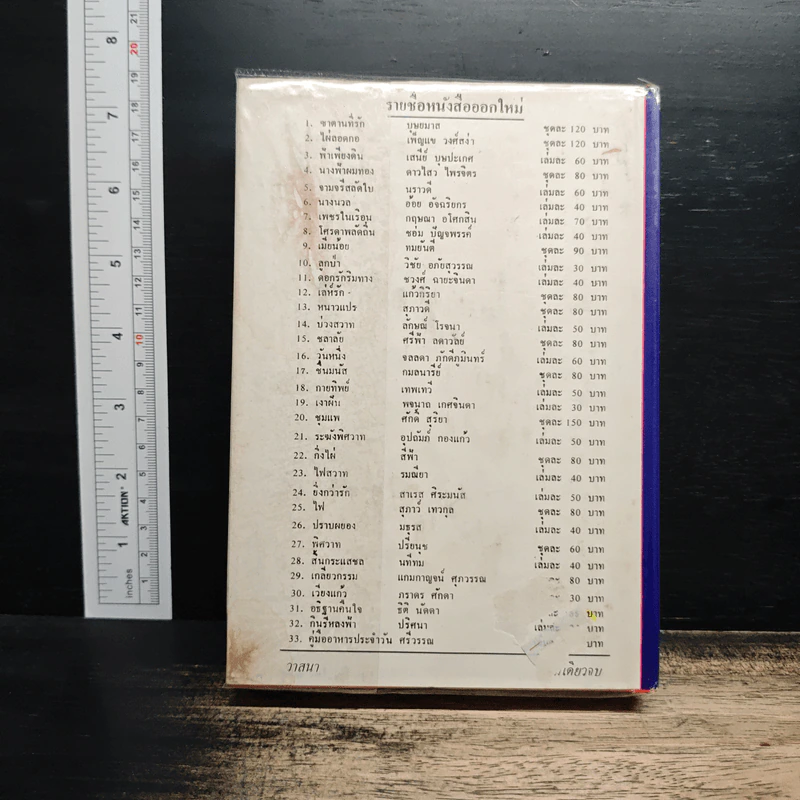 รายชื่อหนังสือออกใหม่
1. ซาตานที่รัก บุษยมาส ชุดละ 120 บาท
2. ไผ่ลอดกอ เพ็ญแข วงศ์สง่า ชุดละ 120 บาท
3. ฟ้าเพียงดิน เสนีย์ บุษปะเกศ เล่มละ 60 บาท
4. นางฟ้าผมทอง ดาวไสว ไพรจิตร ชุดละ 80 บาท
5. จามจุรีสลัดใบ นราวดี เล่มละ 60 บาท
6. นางนวล อ้อย อัจฉริยกร เล่มละ 40 บาท
7. เพชรในเรือน กฤษณา อโศกสิน เล่มละ 70 บาท
8. โศรดาพลัดถิ่น ชอุ่ม ปัญจพรรค์ เล่มละ 40 บาท
9. เมียน้อย ทมยันตี ชุดละ 90 บาท
10. ลูกบ้า วิชัย อภัยสุวรรณ เล่มละ 30 บาท
11. ดอกรักริมทาง ชวงศ์ ฉายะจินดา เล่มละ 40 บาท
12. เล่ห์รัก แก้วกิริยา ชุดละ 80 บาท
13. หนาวแปร สุภาวดี ชุดละ 80 บาท
14. บ่วงสวาท ลักษณ์ โรจนา เล่มละ 50 บาท
15. ชลาลัย ศรีฟ้า ลดาวัลย์ ชุดละ 80 บาท
16. วันหนึ่ง จุลลดา ภักดีภูมินทร์ เล่มละ 60 บาท
17. ชื่นมนัส กมลนารีย์ ชุดละ 80 บาท
18. กายทิพย์ เทพเทวี เล่มละ 50 บาท
19. เงาฝัน พจนาถ เกศจินดา เล่มละ 30 บาท
20. ชุมแพ ศักดิ์ สุริยา ชุดละ 150 บาท
21. ระฆังพิศวาท อุปถัมภ์ กองแก้ว เล่มละ 50 บาท
22. กิ่งไผ่ สีฟ้า ชุดละ 80 บาท
23. ไฟสวาท รมณียา เล่มละ 40 บาท
24. ยิ่งกว่ารัก สาเรส ศิระมนัส เล่มละ 50 บาท
25. ไฟ สุภาว์ เทวกุล ชุดละ 80 บาท
26. ปราบผยอง มธุรส เล่มละ 40 บาท
27. พิศวาท ปรียนุช ชุดละ 60 บาท
28. สิ้นกระแสชล นทีทม เล่มละ 40 บาท
29. เกลียวกรรม แถมกาญจน์ ศุภวรรณ 80 บาท
30. เวียงแก้ว ภราดร ศักดา 30 บาท
31. อธิฐานคืนใจ ธิติ นัดดา บาท
32. กินรีหลงฟ้า ปริศนา เล่มละ บาท
33. คู่มืออาหารประจำวัน ศรีวรรณ บาท
วาสนา เดียวจบ
8
7
6
5
4
3
2
1
inches
AKTION
21
20
10